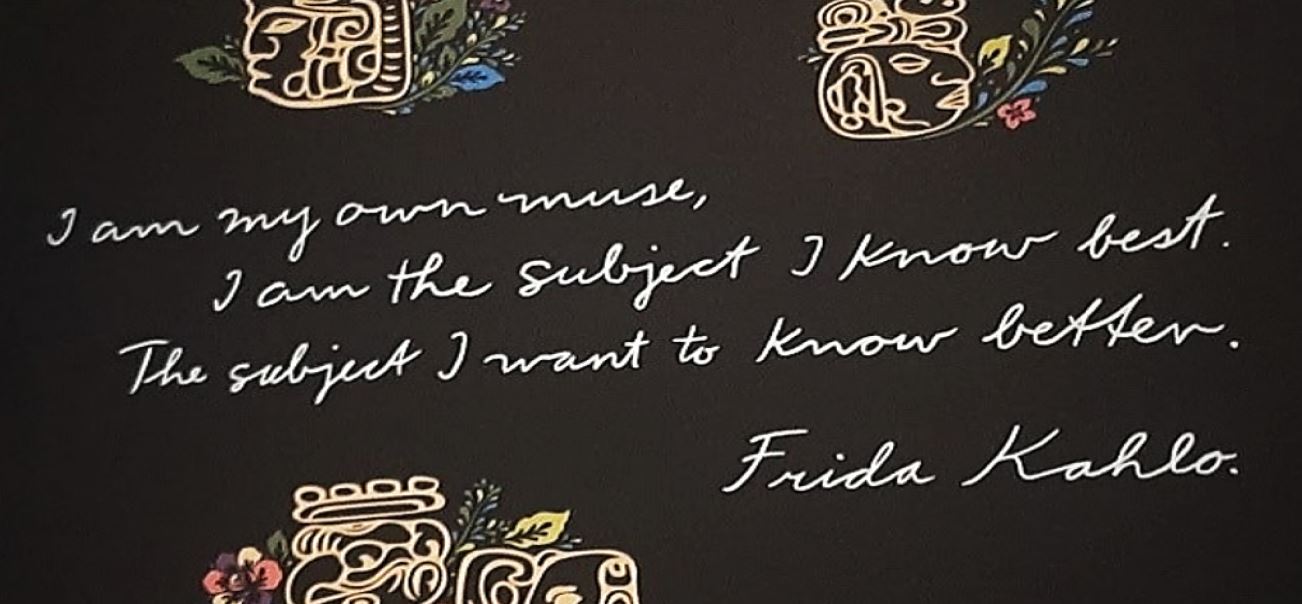 I am my own muse,
I am the subject I know best.
The subject I want to know better.
Frida Kahlo.